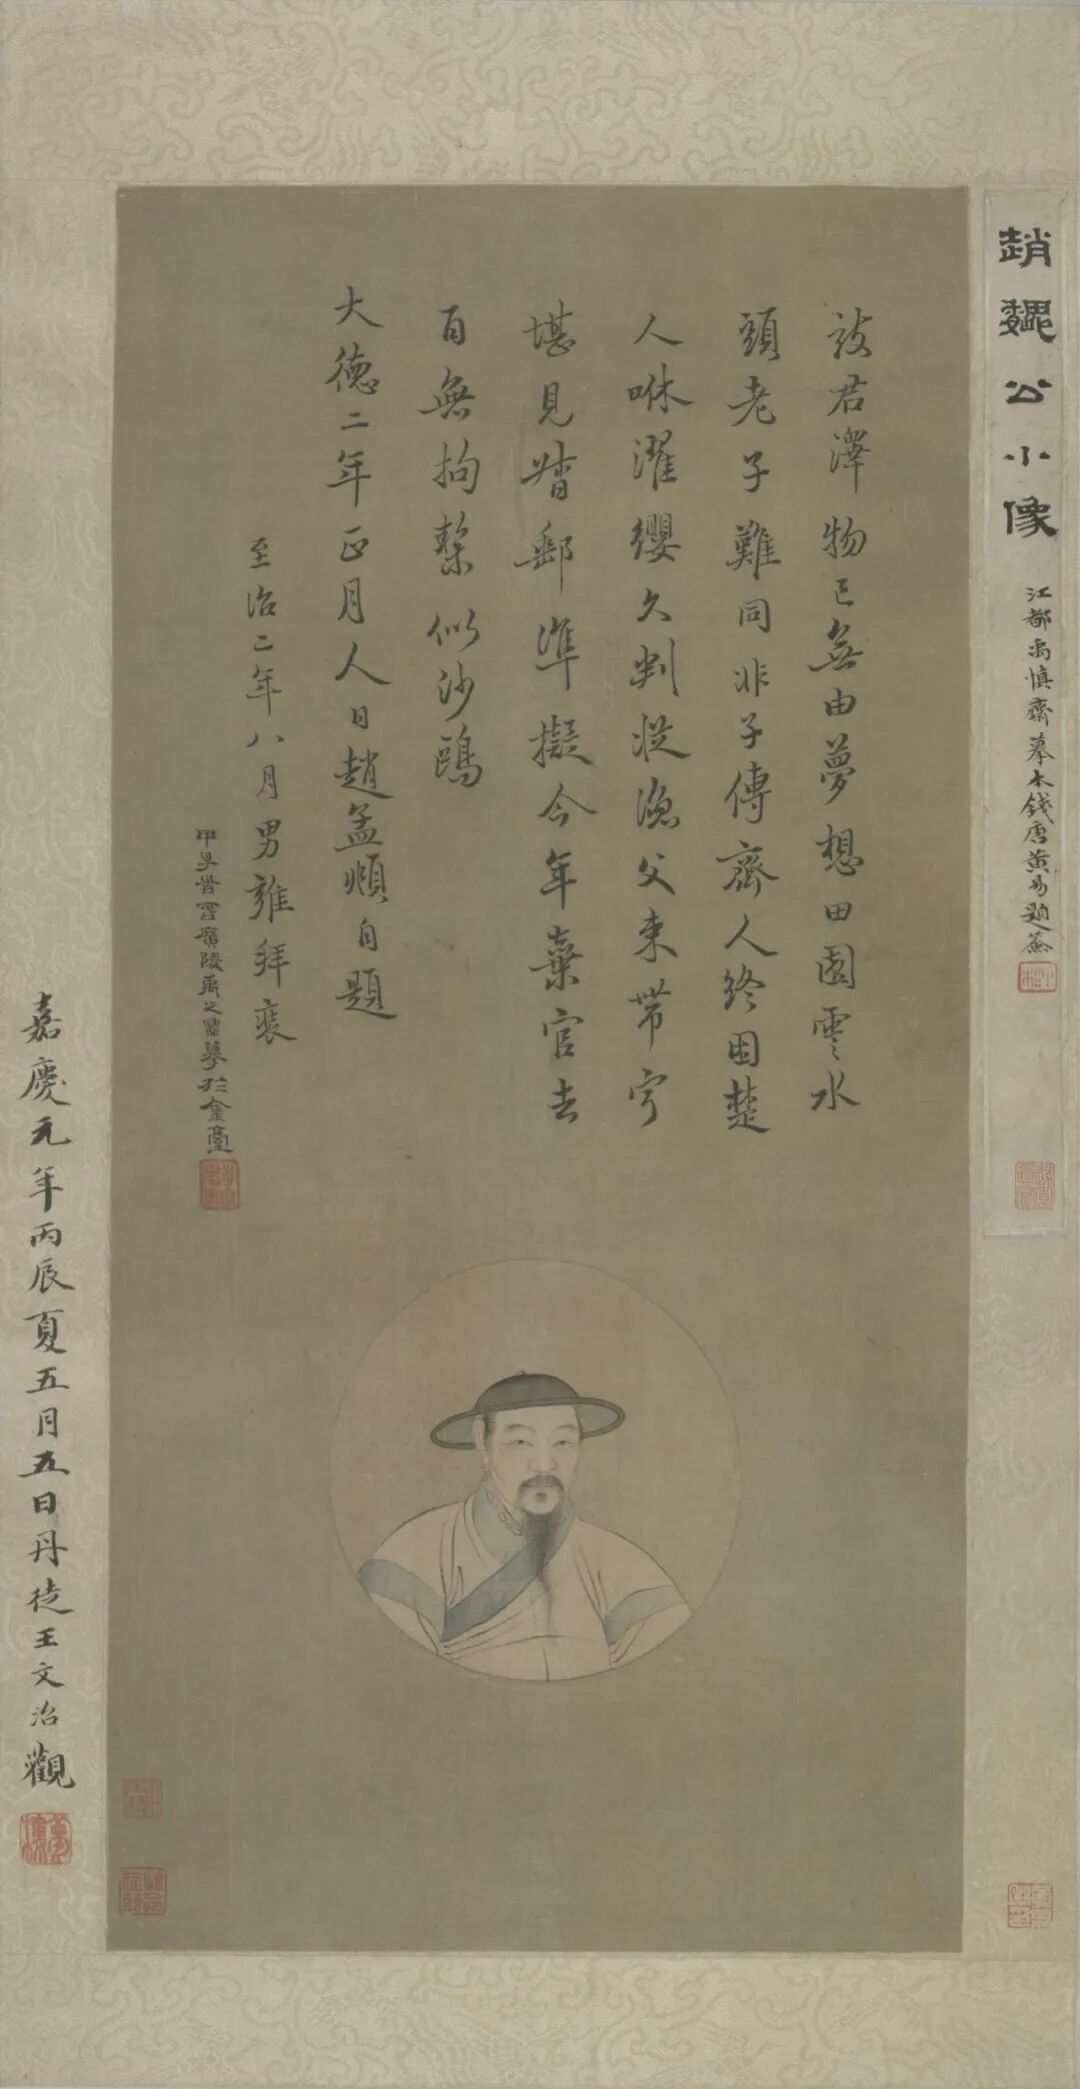 趙魏公小像
江都禹慎齋摹本錢唐黃易題簽
致君澤物已無由夢想田園雲水
頭老子難同非子傳齊人終困楚
人咻濯纓久判從漁父束帶寧
堪見督郵準擬今年棄官去
自無拘繫似沙鷗
大德二年正月人日趙孟頫自題
至治二年八月男雍拜裝
廣陵禹之鼎摹於金臺
嘉慶元年丙辰夏五月五日丹徒王文治觀